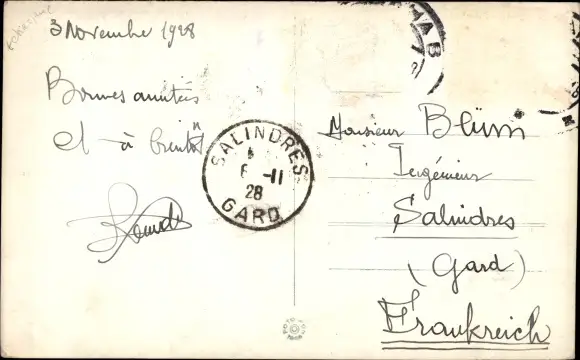 3 Novembre 1928
Bonnes amitiés
et à bientôt
SALINDRES
6 -11
28
GARD
HAB
Monsieur Blüm
Ingénieur
Salindres
(Gard)
Frankreich